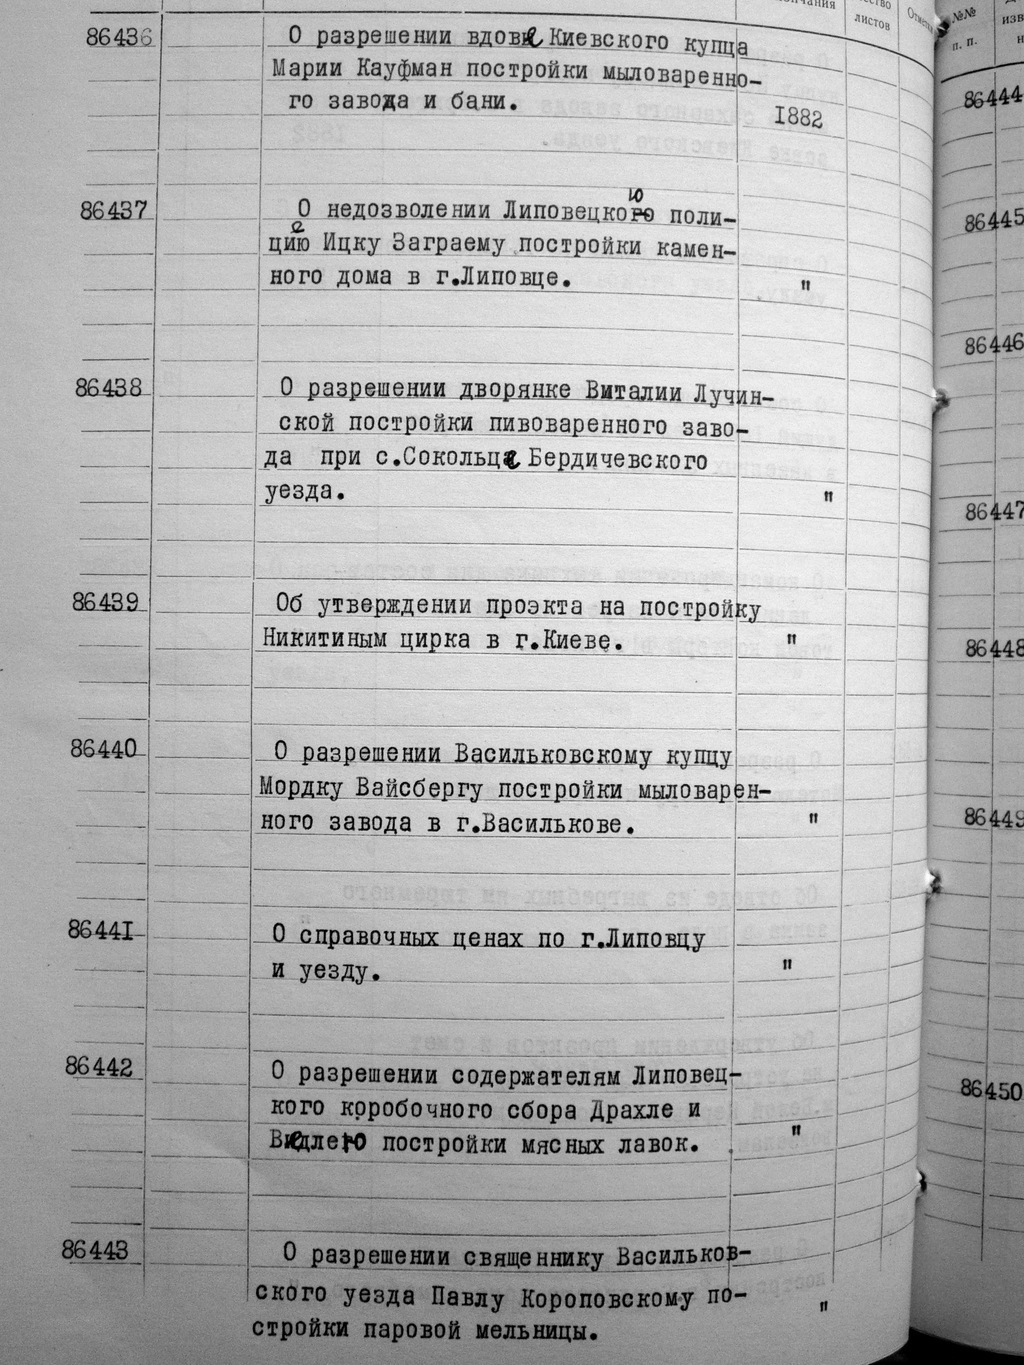 листов
№№
п. п.
86436
О разрешении вдове Киевского купца
Марии Кауфман постройки мыловаренно-
го завода и бани.
1882
86437
О недозволении Липовецкою поли-
цие Ицку Заграему постройки камен-
ного дома в г.Липовце.
"
86438
О разрешении дворянке Виталии Лучин-
ской постройки пивоваренного заво-
да при с.Сокольце Бердичевского
уезда.
"
86439
Об утверждении проэкта на постройку
Никитиным цирка в г.Киеве.
"
86440
О разрешении Васильковскому купцу
Мордку Вайсбергу постройки мыловарен-
ного завода в г.Василькове.
"
86441
О справочных ценах по г.Липовцу
и уезду.
"
86442
О разрешении содержателям Липовец-
кого коробочного сбора Драхле и
постройки мясных лавок.
"
86443
О разрешении священнику Васильков-
ского уезда Павлу Короповскому по-
стройки паровой мельницы.
"
86444
86445
86446
86447
86448
86449
86450